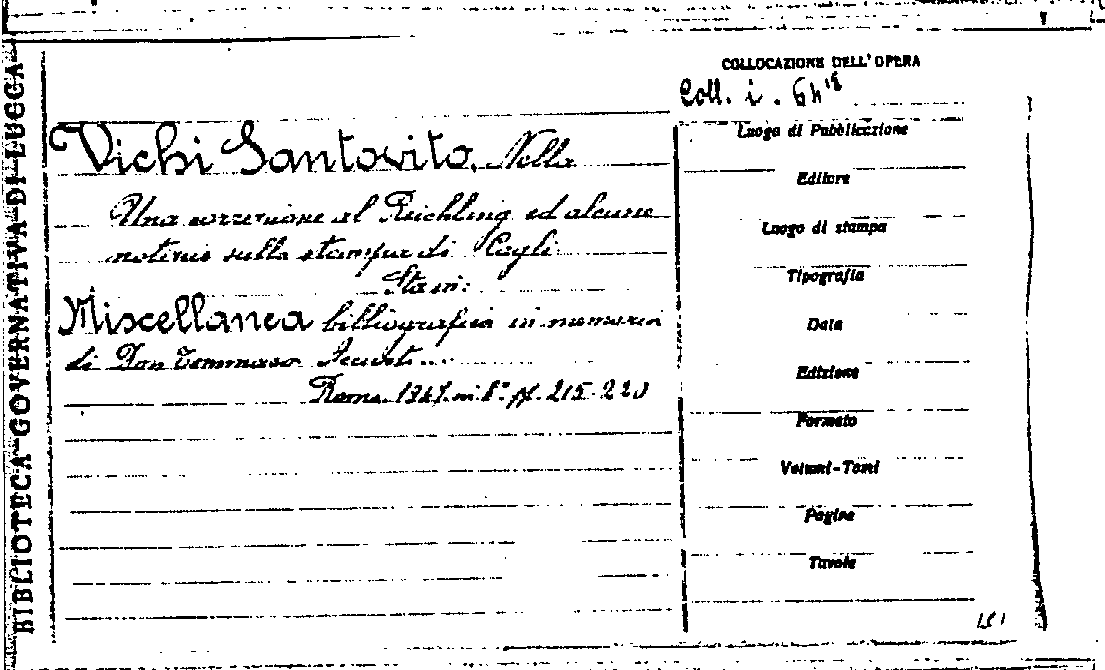 BIBLIOTECA GOVERNATIVA DI LUCCA
COLLOCAZIONE DELL'OPERA
Coll. i. 64
Vichi Santovito, Nella
Una correzione al Reichling ed alcune
notizie sulla stampa di Cagli
Sta in:
Miscellanea bibliografica in memoria
di Don Tommaso
Roma 1947. in 8° pp. 215-220
Luogo di Pubblicazione
Editore
Luogo di stampa
Tipografia
Data
Edizione
Formato
Volumi-Tomi
Pagine
Tavole